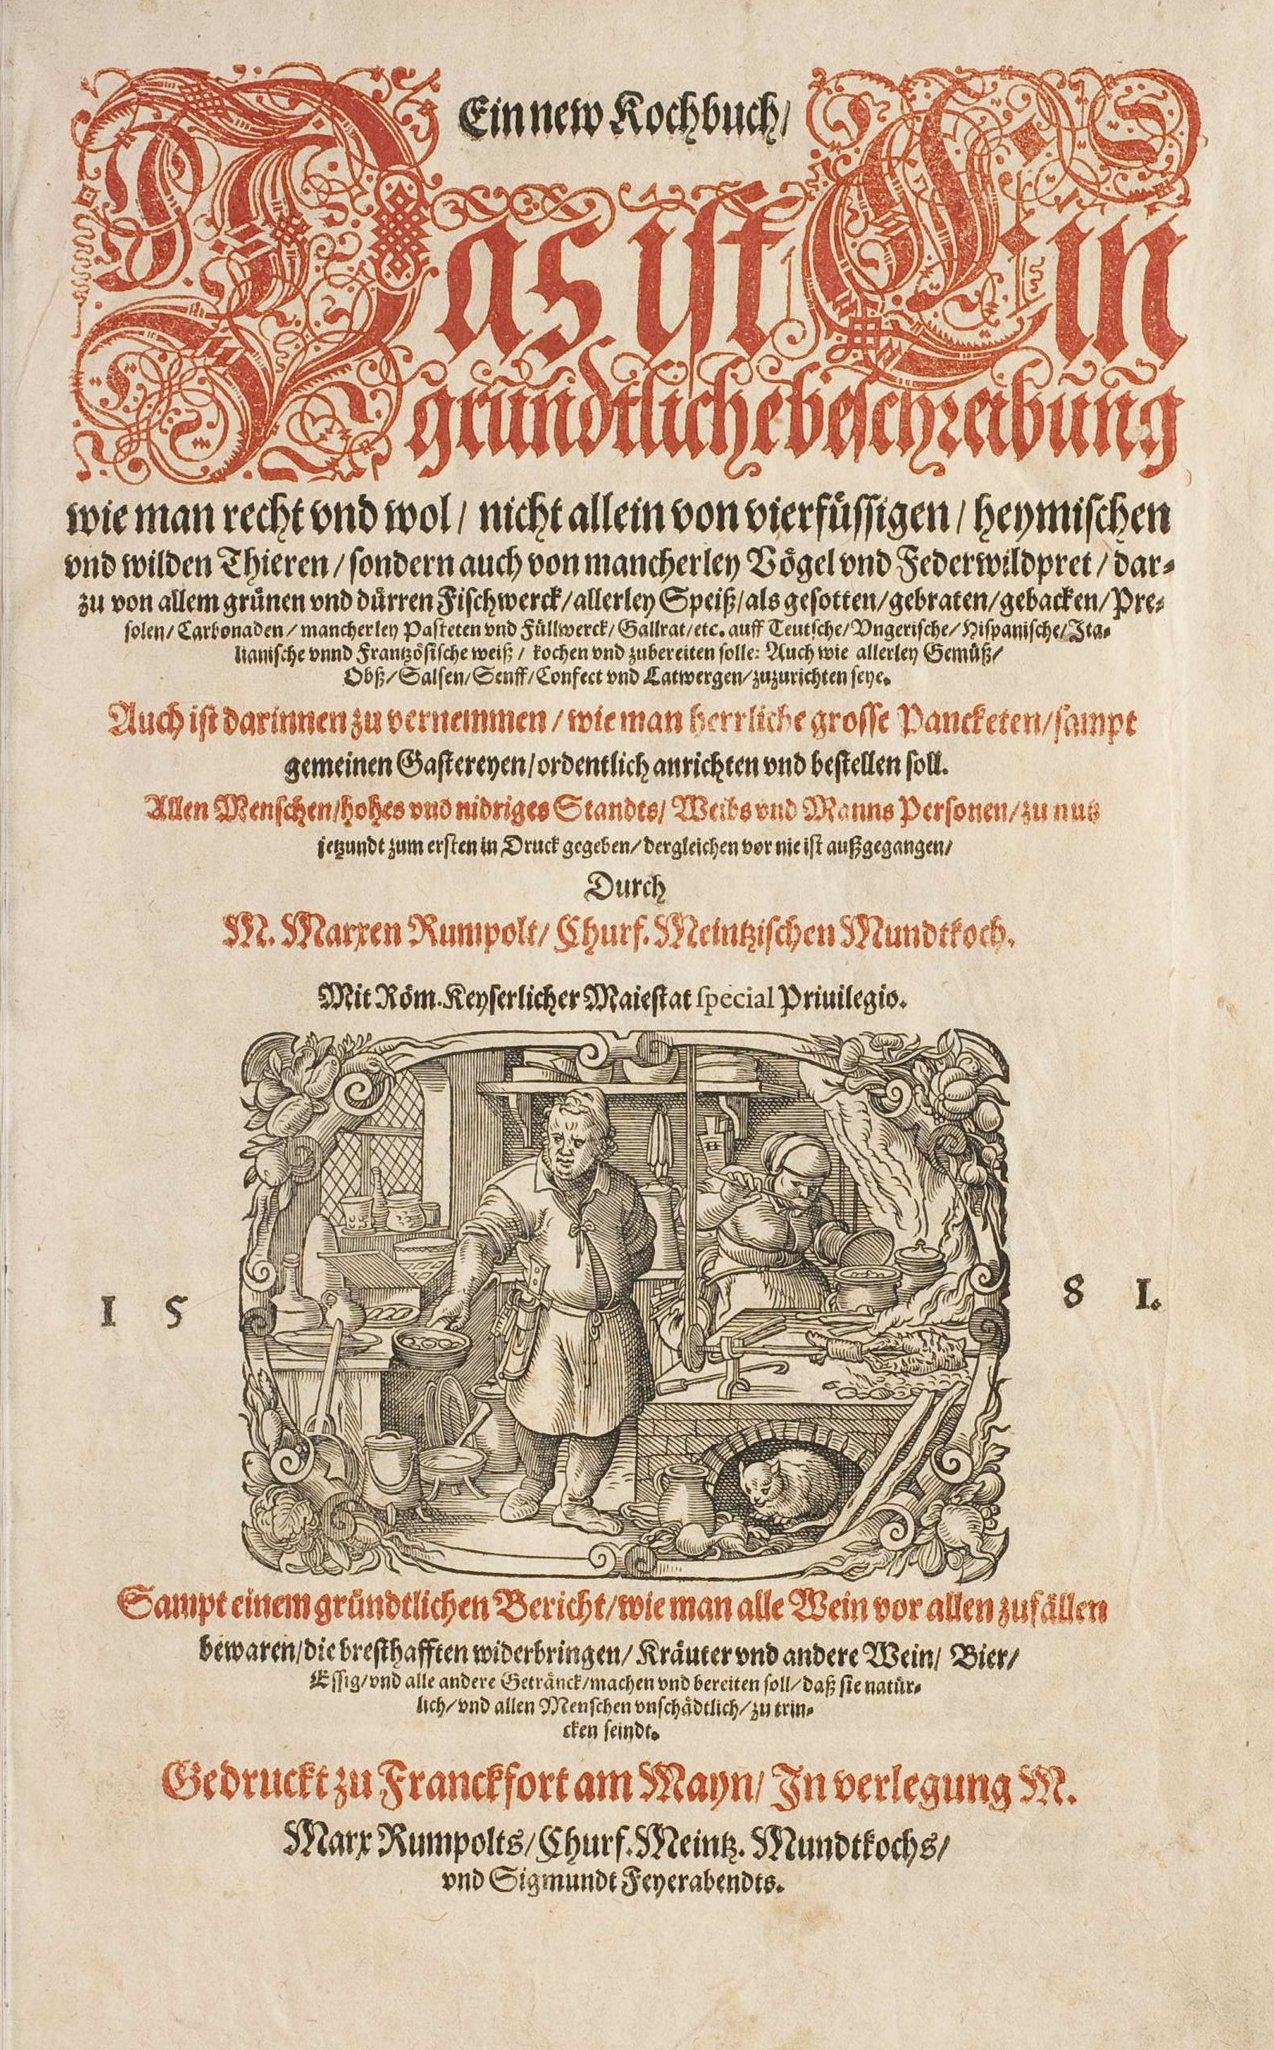 Ein new Kochbuch/
Das ist Ein
gründtliche beschreibung
wie man recht vnd wol/ nicht allein von vierfüssigen/ heymischen
vnd wilden Thieren/ sondern auch von mancherley Vögel vnd Federwildpret/ dar-
zu von allem grünen vnd dürren Fischwerck/ allerley Speiß/ als gesotten/ gebraten/ gebacken/ Pre-
solen/ Carbonaden/ mancherley Pasteten vnd Füllwerck/ Gallrat/ etc. auff Teutsche/ Vngerische/ Hispanische/ Ita-
lianische vnnd Frantzösische weiß/ kochen vnd zubereiten solle: Auch wie allerley Gemüß/
Obß/ Salsen/ Senff/ Confect vnd Latwergen/ zuzurichten seye.
Auch ist darinnen zu vernemmen/ wie man herrliche grosse Pancketen/ sampt
gemeinen Gastereyen/ ordentlich anrichten vnd bestellen soll.
Allen Menschen/ hohes vnd nidriges Standts/ Weibs vnd Manns Personen/ zu nutz
jetzundt zum ersten in Druck gegeben/ dergleichen vor nie ist außgegangen/
Durch
M. Marxen Rumpolt/ Churf. Meintzischen Mundtkoch.
Mit Röm. Keyserlicher Maiestat special Priuilegio.
1 5 8 1.
Sampt einem gründtlichen Bericht/ wie man alle Wein vor allen zufällen
bewaren/ die bresthafften widerbringen/ Kräuter vnd andere Wein/ Bier/
Essig/ vnd alle andere Getränck/ machen vnd bereiten soll/ daß sie natür-
lich/ vnd allen Menschen vnschädtlich/ zu trin-
cken seindt.
Gedruckt zu Franckfort am Mayn/ In verlegung M.
Marx Rumpolts/ Churf. Meintz. Mundtkochs/
vnd Sigmundt Feyerabendts.